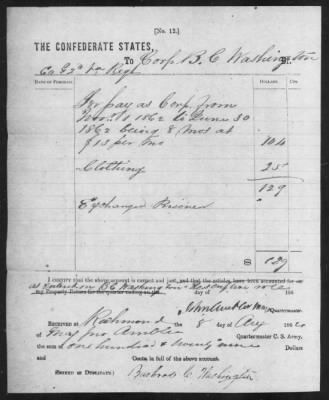 [No. 12.]
THE CONFEDERATE STATES,
To Corp. B. C. Washington Dr.
Co G 2d Va Regt
DATE OF PURCHASE. DOLLARS. CTS.
For pay as Corp. from
Nov. 1 1861 to June 30
1862 being 8 mos at
$13 per mo 104
Clothing 25
129
Exchanged Prisoner
$ 129
I certify that the above account is correct and just, and that the articles have been accounted for on
my Property Return for the quarter ending on the day of 186
John Ambler Maj Quartermaster.
RECEIVED at Richmond the 8 day of Aug 1862, of
Maj Jno Ambler Quartermaster C. S. Army,
the sum of one hundred & twenty nine Dollars
and Cents, in full of the above account.
(SIGNED IN DUPLICATE.) Bushrod C. Washington